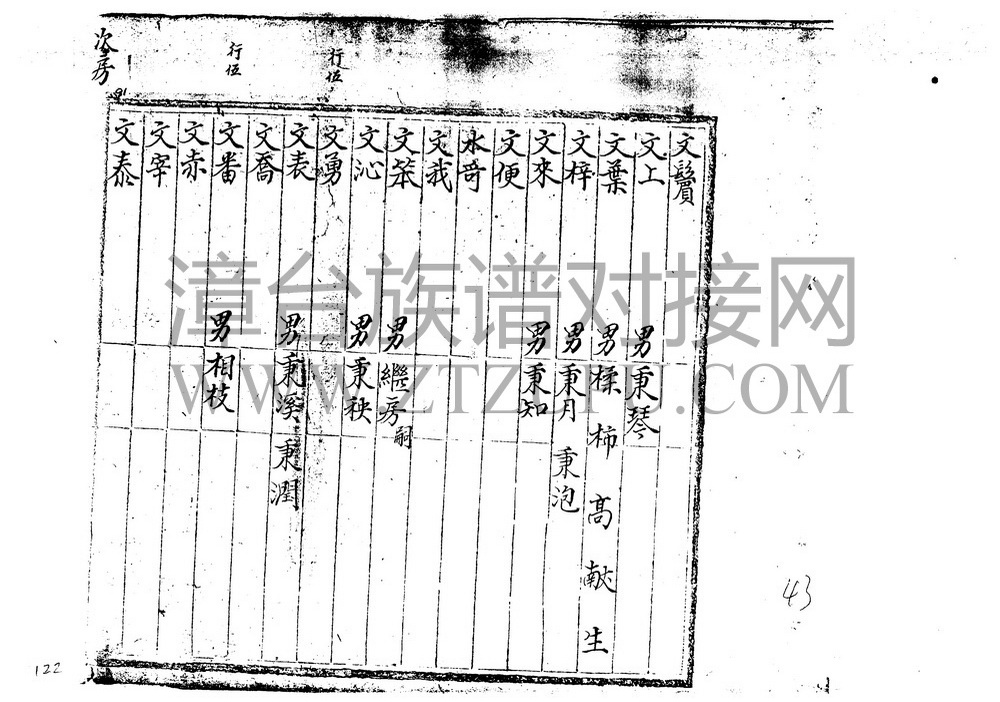 次房
行伍
行伍
文鬢
文上 男秉琴
文葉 男樣 柿 高 献 生
文梓 男秉月 秉泡
文來 男秉知
文便
水哥
文我
文笨 男繼房嗣
文沁 男秉秧
文勇
文表 男秉溪 秉潤
文喬
文番 男相枝
文赤
文宰
文泰
漳台族谱对接网
WWW.ZTZUPU.COM
43
122